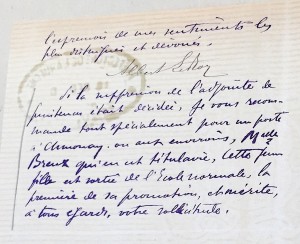 l'expression de mes sentiments les
plus distingués et dévoués.
Albert Le Roy
Si la suppression de l'adjointe de
était décidée, je vous recom-
mande tout spécialement pour un poste
à Annonay ou aux environs, Melle
qui en est titulaire. Cette jeune
fille est sortie de l'Ecole normale, la
première de sa promotion, et mérite,
à tous égards, votre sollicitude.